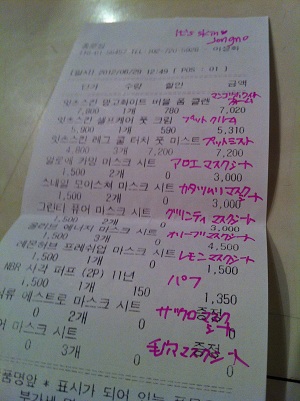 It's skin
jongno
종로점
이영희
[일자] 2012/06/29 12:49 [ POS : 01 ]
단가 수량 할인 금액
잇츠스킨 망고화이트 어필 폼 클렌 マンゴホワイトフォーム
7,800 1개 780 7,020
잇츠스킨 셀프케어 풋 크림 フットクリーム
5,900 1개 590 5,310
잇츠스킨 레그 쿨 터치 풋 미스트 フットミスト
4,800 3개 7,200 7,200
알로에 카밍 마스크 시트 アロエマスクシート
1,500 2개 0 3,000
스네일 모이스처 마스크 시트 カタツムリマスクシート
1,500 2개 0 3,000
그린티 퓨어 마스크 시트 グリンティマスクシート
1,500 2개 0 3,000
올리브 에너지 마스크 시트 オリーブマスクシート
1,500 3개 0 4,500
레몬허브 프레쉬업 마스크 시트 レモンマスクシート
1,500 1개 0 1,500
NBR 사각 퍼프 (2P) 11년 パフ
1,500 1개 150 1,350
석류 에스트로 마스크 시트 ザクロマスクシート
0 2개 0 증정
어 마스크 시트 毛穴マスクシート
0 3개 0 증정
품명앞 * 표시가 되어 있는 품목은
부가세